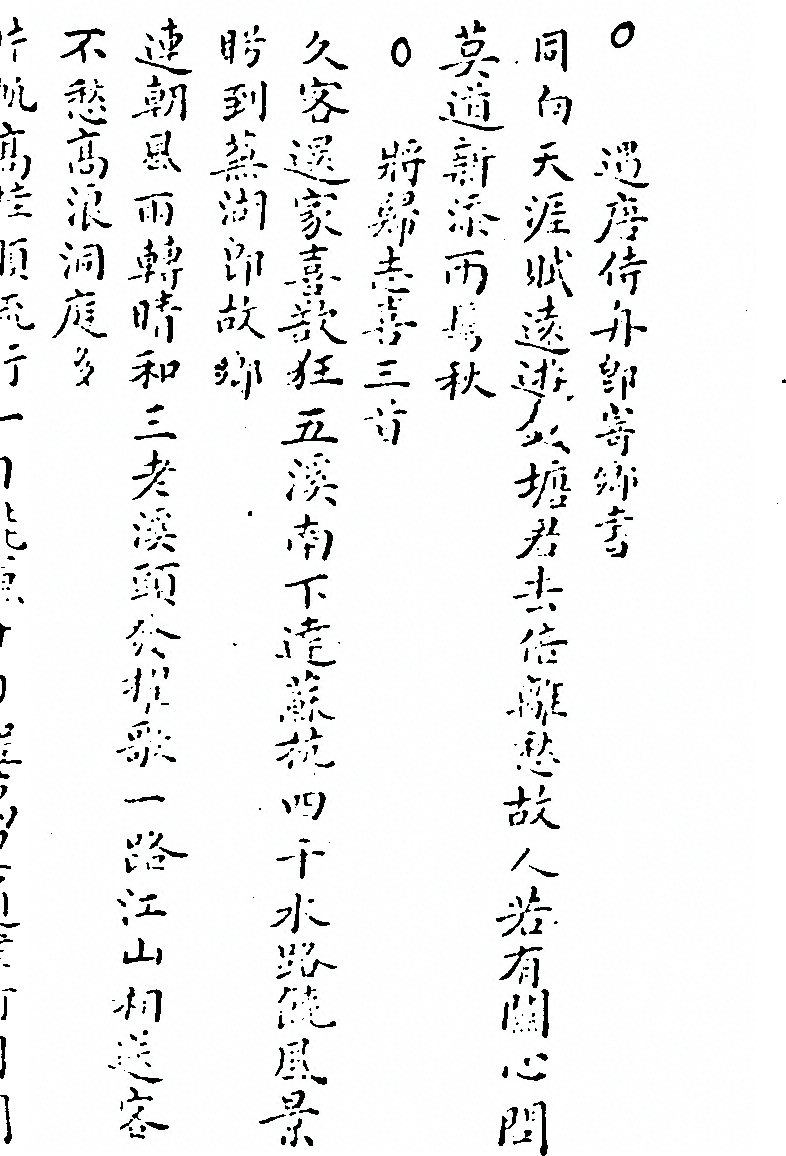 ○ 遇唐侍舟卽寄鄉書
同向天涯賦遠遊 塘君去倍離愁故人若有關心問
莫道新添兩鬂秋
○ 將歸志喜三首
久客還家喜欲狂五溪南下達蘇杭四千水路饒風景
盻到蕪湖即故鄉
連朝風雨轉晴和三老溪頭發櫂歌一路江山相送客
不愁高浪洞庭多
片帆高挂順流行一月能